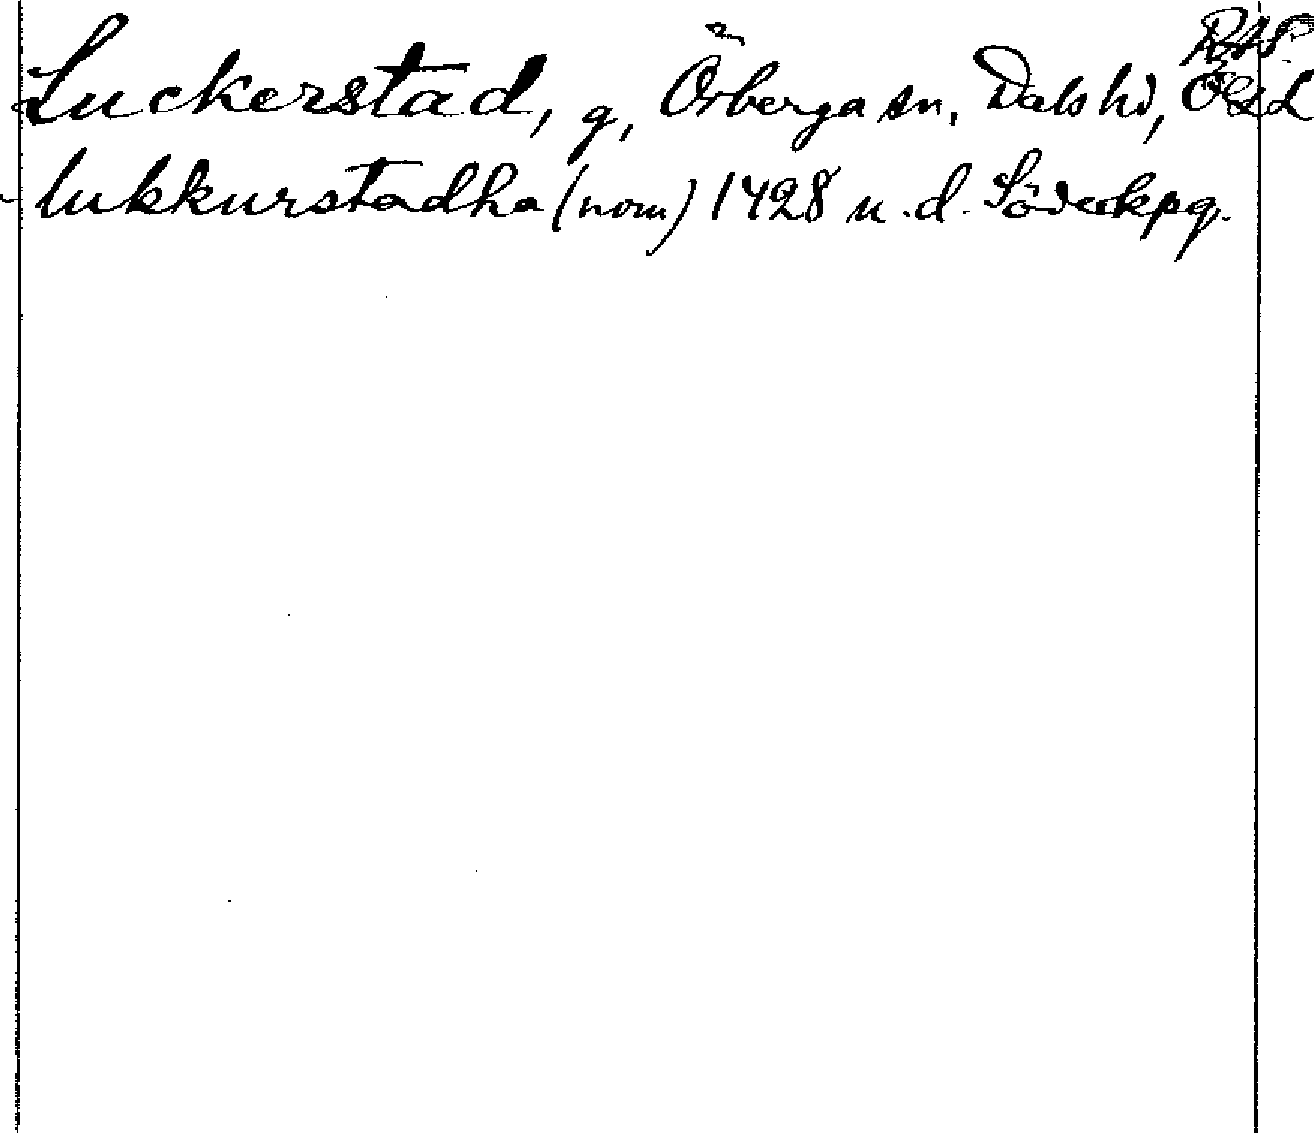 RAP.
Luckerstad, g, Örberga sn, Dals hd, Ög L
lukkurstadha (nom) 1428 u.d. Söderkpg.